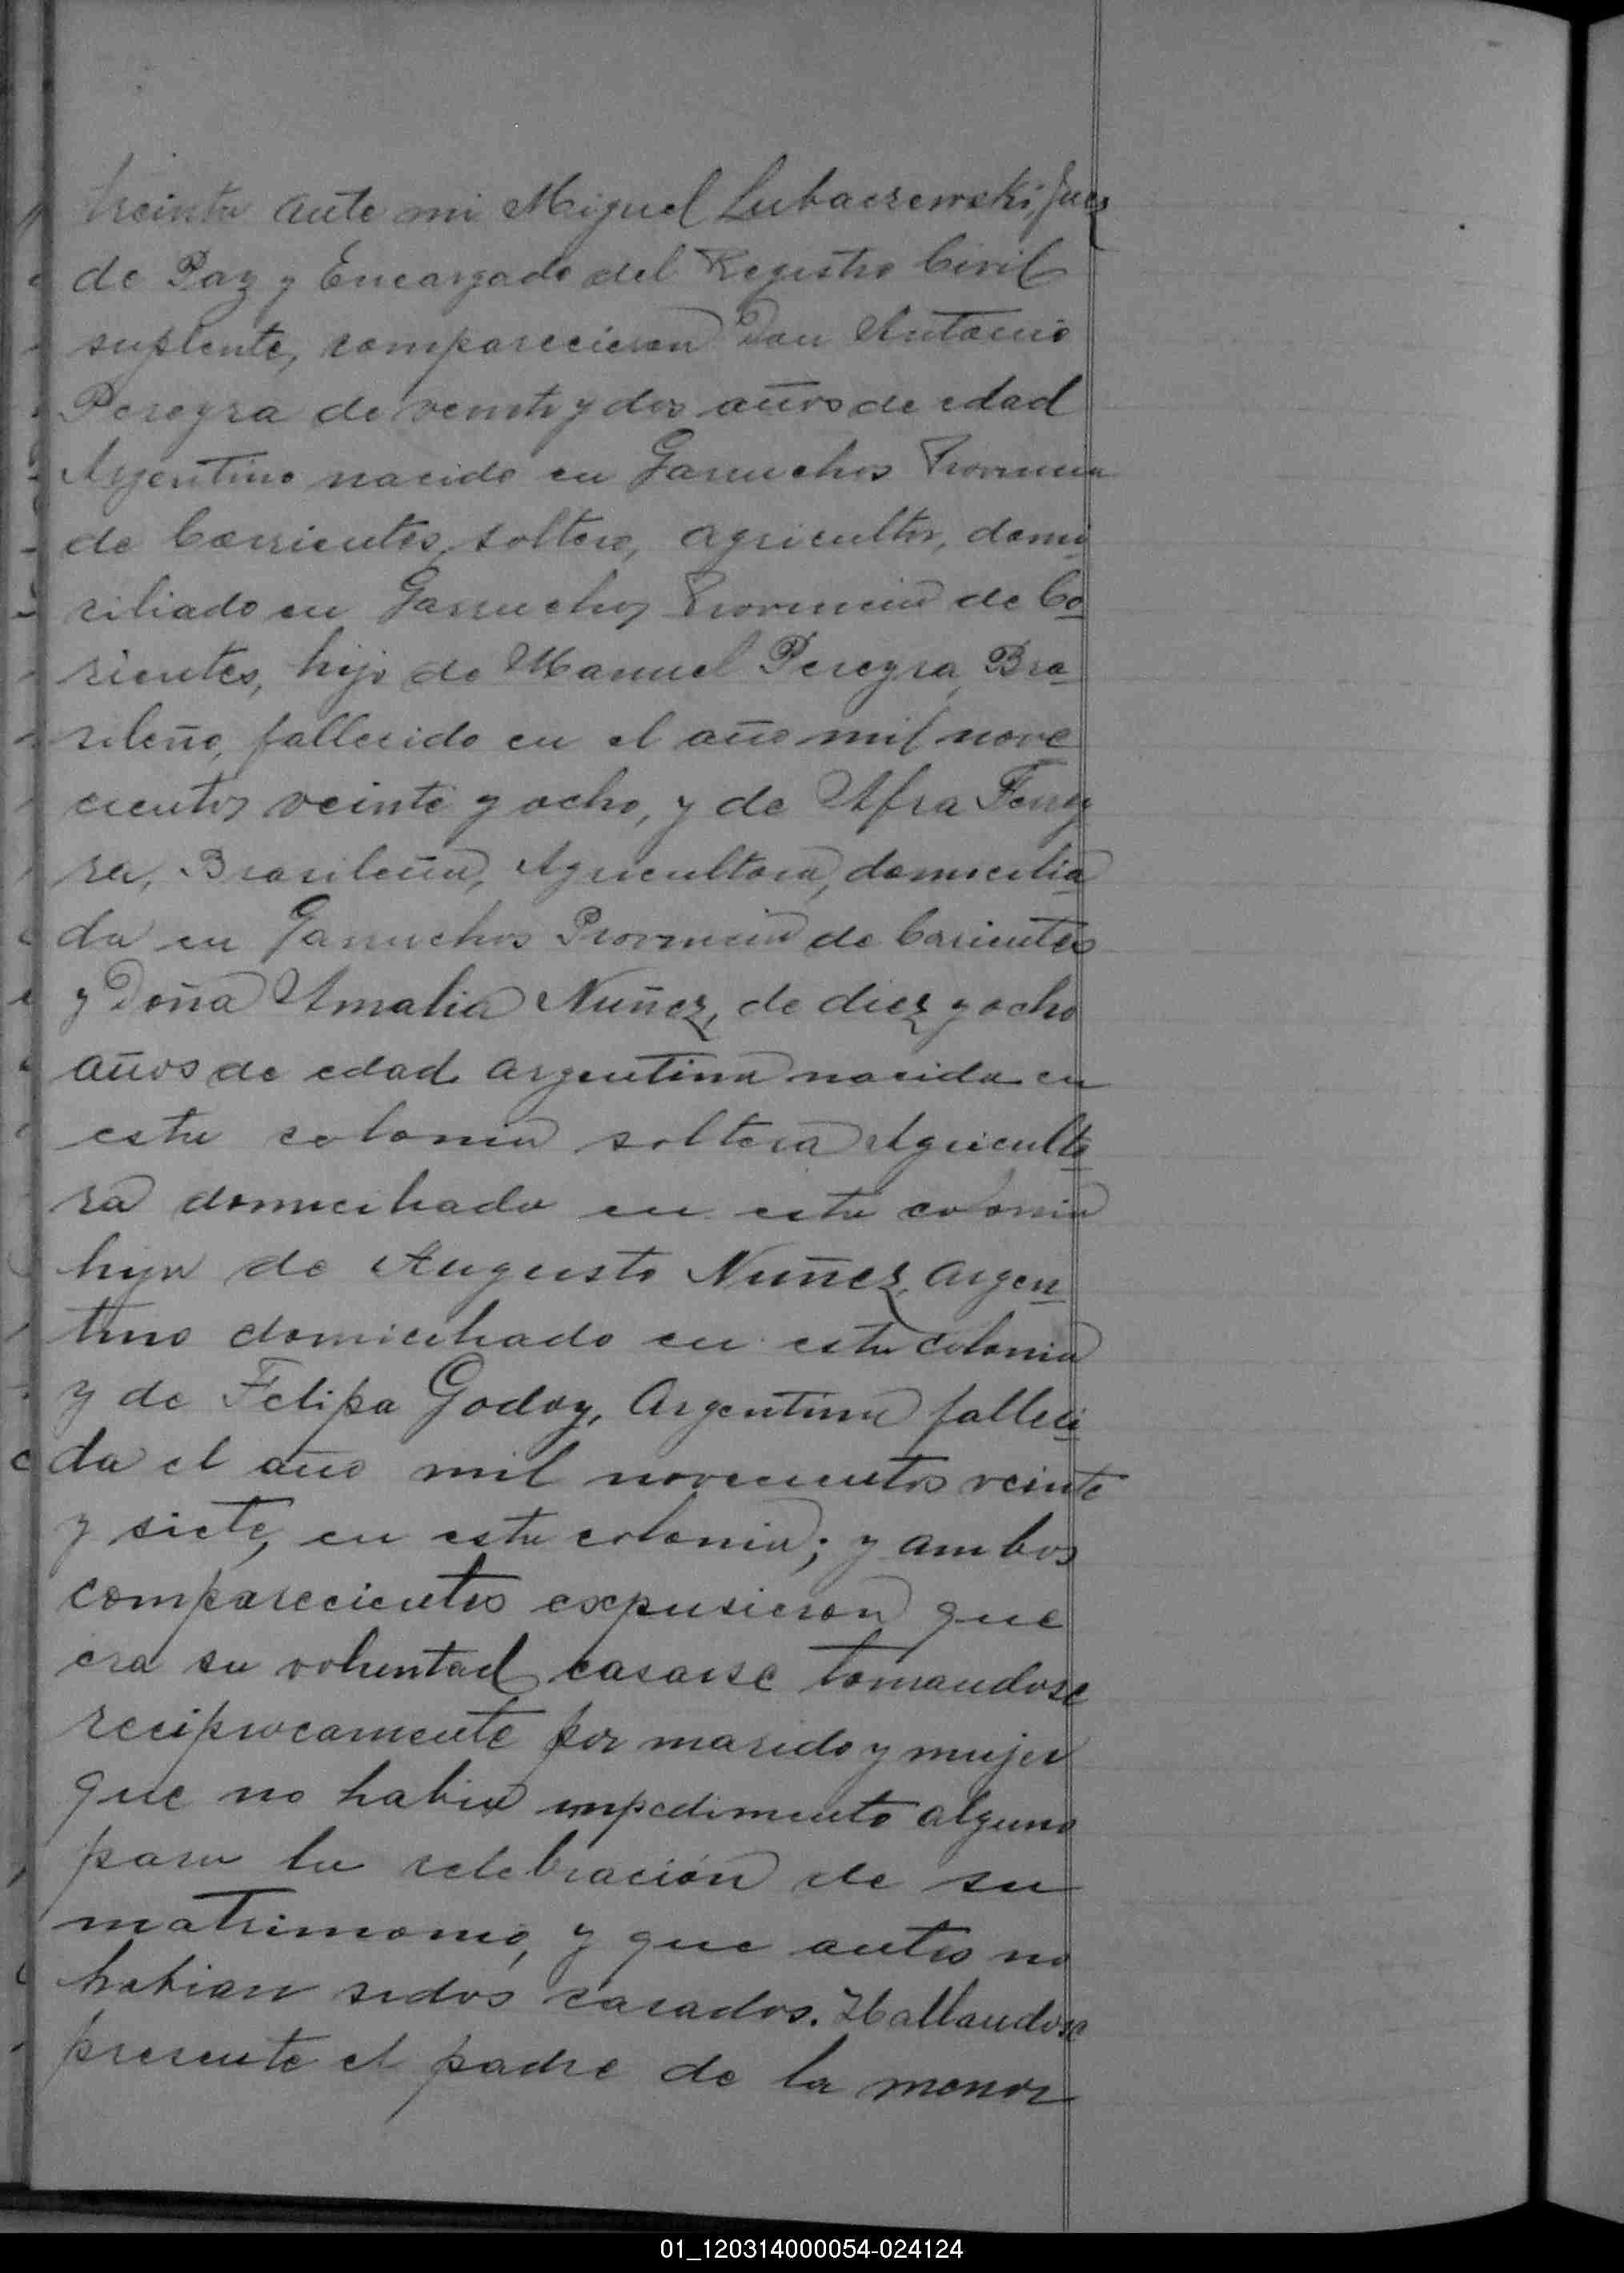 treinta ante mi Miguel Lubaczewski, Juez
de Paz y Encargado del Registro Civil
suplente, comparecieron Don Antonio
Pereyra de veinte y dos años de edad
Argentino nacido en Garruchos Provincia
de Corrientes, soltero, agricultor, domi
ciliado en Garruchos Provincia de Co
rientes, hijo de Manuel Pereyra, Bra
sileño, fallecido en el año mil nove
cientos veinte y ocho, y de Afra Ferrey
ra, Brasileña, Agricultora, domicilia
da en Garruchos Provincia de Corientes
y Doña Amalia Nuñez, de diez y ocho
años de edad argentina nacida en
esta colonia soltera Agriculto
ra domiciliada en esta colonia
hija de Augusto Nuñez, argen
tino domiciliado en esta colonia
y de Felipa Godoy, Argentina falleci
da el año mil novecientos veinte
y siete, en esta colonia; y ambos
comparecientes expusieron que
era su voluntad casarse tomandose
reciprocamente por marido y mujer
que no habia impedimento alguno
para la celebración de su
matrimonio, y que antes no
habian sidos casados. Hallandose
presente el padre de la menor
01_120314000054-024124